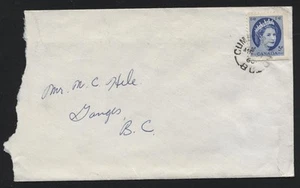 Mr. M. C. Hele
Ganges,
B.C.
CUM